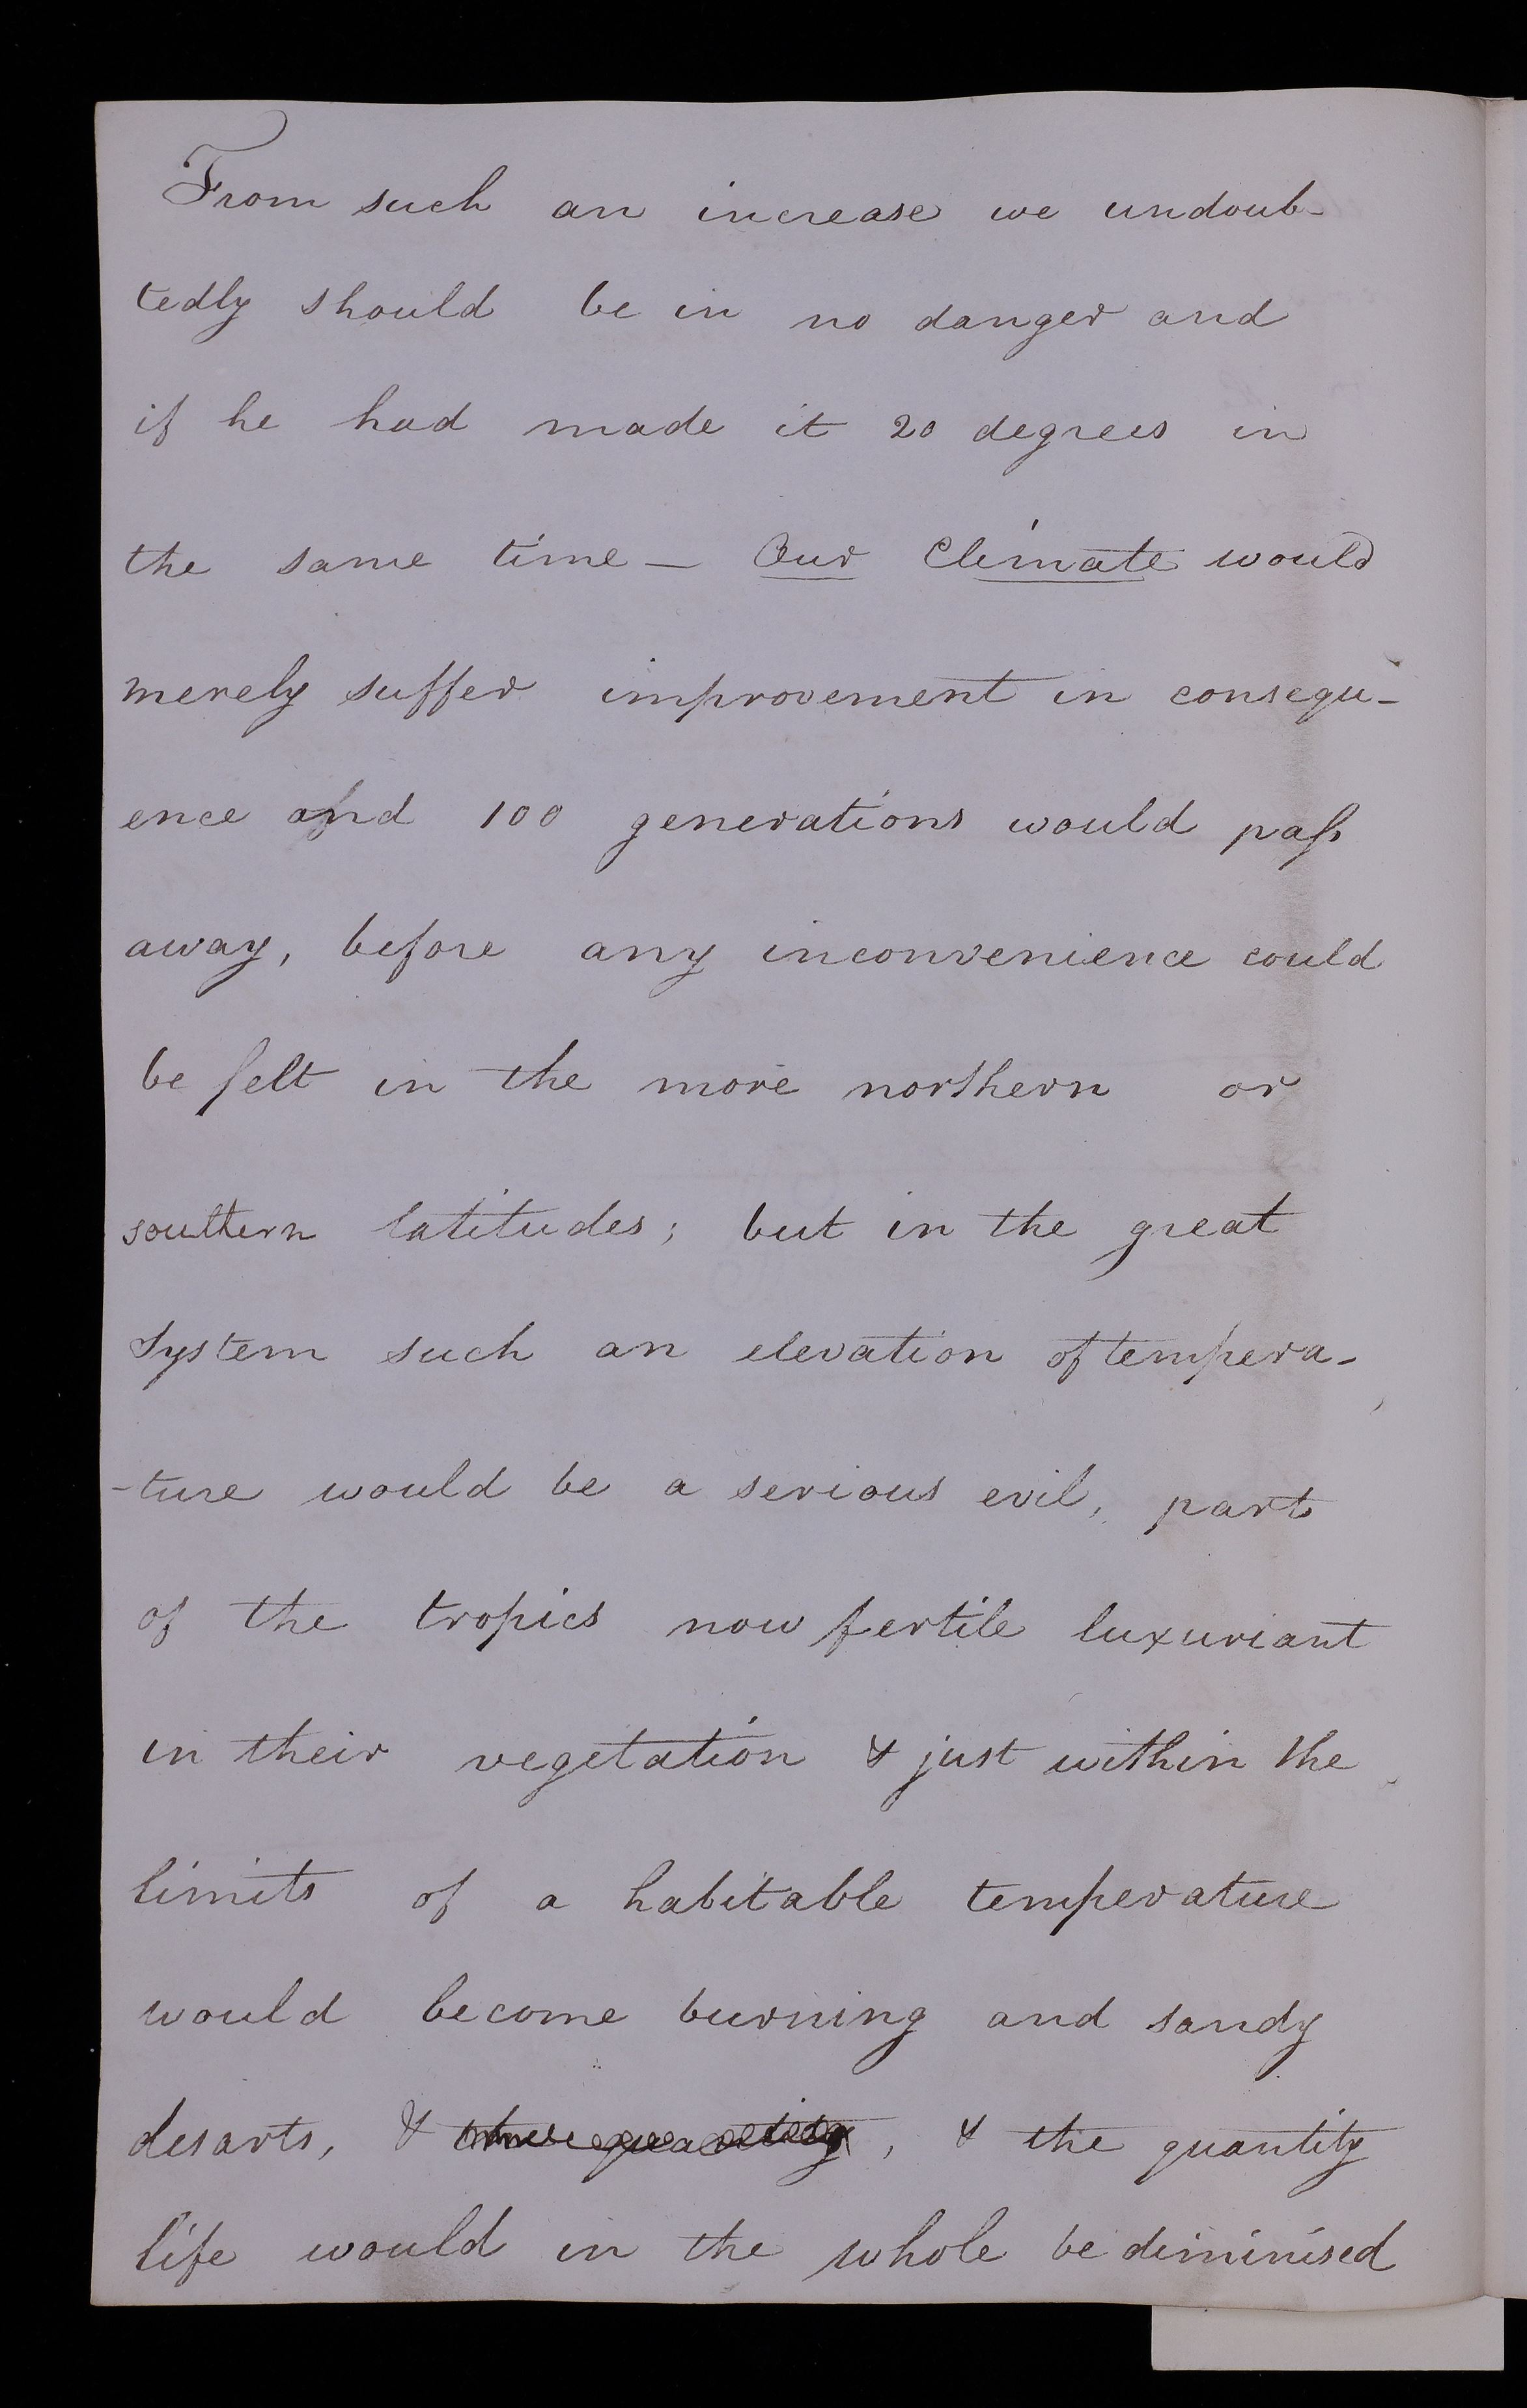 From such an increase we undoub-
tedly should be in no danger and
if he had made it 20 degrees in
the same time — Our Climate would
merely suffer improvement in consequ-
ence and 100 generations would paſs
away, before any inconvenience could
be felt in the more northern or
southern latitudes; but in the great
System such an elevation of tempera-
-ture would be a serious evil, part
of the tropics now fertile luxuriant
in their vegetation & just within the
limits of a habitable temperature
would become burning and sandy
desarts, & , & the quantity
life would in the whole be diminised